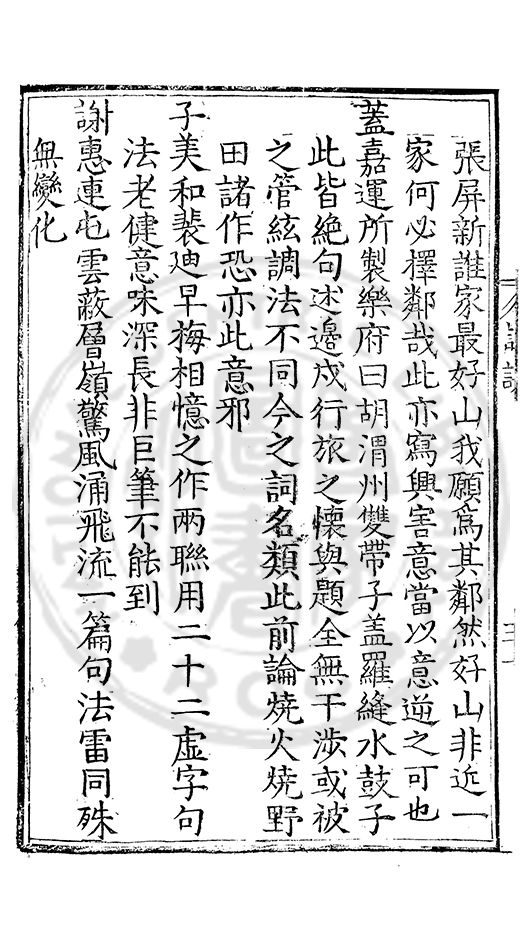 張屏新誰家最好山我願爲其鄰然好山非近一
家何必擇鄰哉此亦寫興害意當以意逆之可也
蓋嘉運所製樂府曰胡渭州雙帶子盖羅縫水鼓子
此皆絶句述邊戍行旅之懷與題全無干涉或被
之管絃調法不同今之詞名類此前論燒火燒野
田諸作恐亦此意邪
子美和裴廸早梅相憶之作兩聯用二十二虚字句
法老健意味深長非巨筆不能到
謝惠連屯雲蔽層嶺驚風涌飛流一篇句法雷同殊
無變化